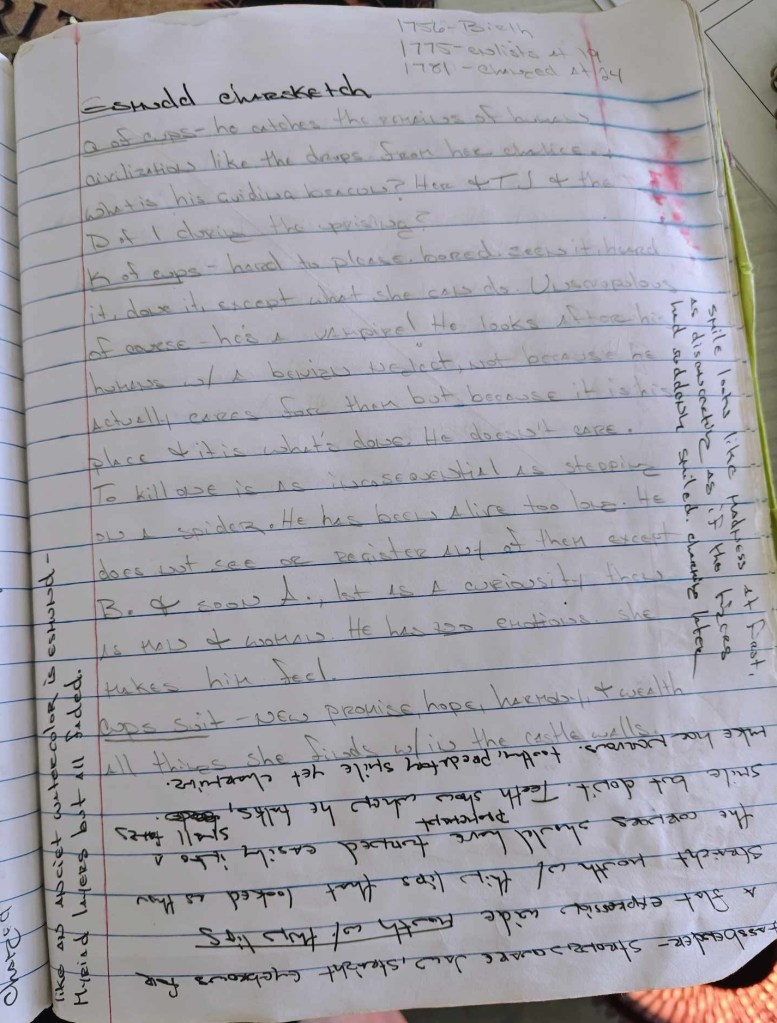 1756 - Birth
1775 - enlists at 19
1781 - changed at 24
Esmudd charsketch
Q of cups - he catches the remains of human
civilization like the drops from her chalice.
What is his guiding beacon? Her & T.J & the
D of I during the uprising?
K of cups - hard to please, bored. seen it, heard
it, done it, except what she can do. Unscrupulous
of course - he's a vampire! He looks after his
humans w/ a benign neglect, not because he
actually cares for them but because it is his
place & it is what's done. He doesn't care.
To kill one is as inconsequential as stepping
on a spider. He has been alive too long. He
does not see or register any of them except
B. & soon A., 1st as a curiosity then
as man & woman. He has no emotions. she
makes him feel.
Cups suit - New promise, hope, harmony, & wealth
all things she finds w/in the castle walls.
smile looks like madness at first,
as disconcerting as if the
had suddenly smiled. charming later
like an ancient watercolor is esmund -
Myriad layers but all faded.
- strong square jaw, straight eyebrows for
a flat expression, wide mouth w/ thin lips
straight mouth w/ thin lips that looked as tho
the corners should have turned easily into a
smile but don't. Teeth show when he talks,
permanent small
make her nervous. toothy, predatory smile yet charming.